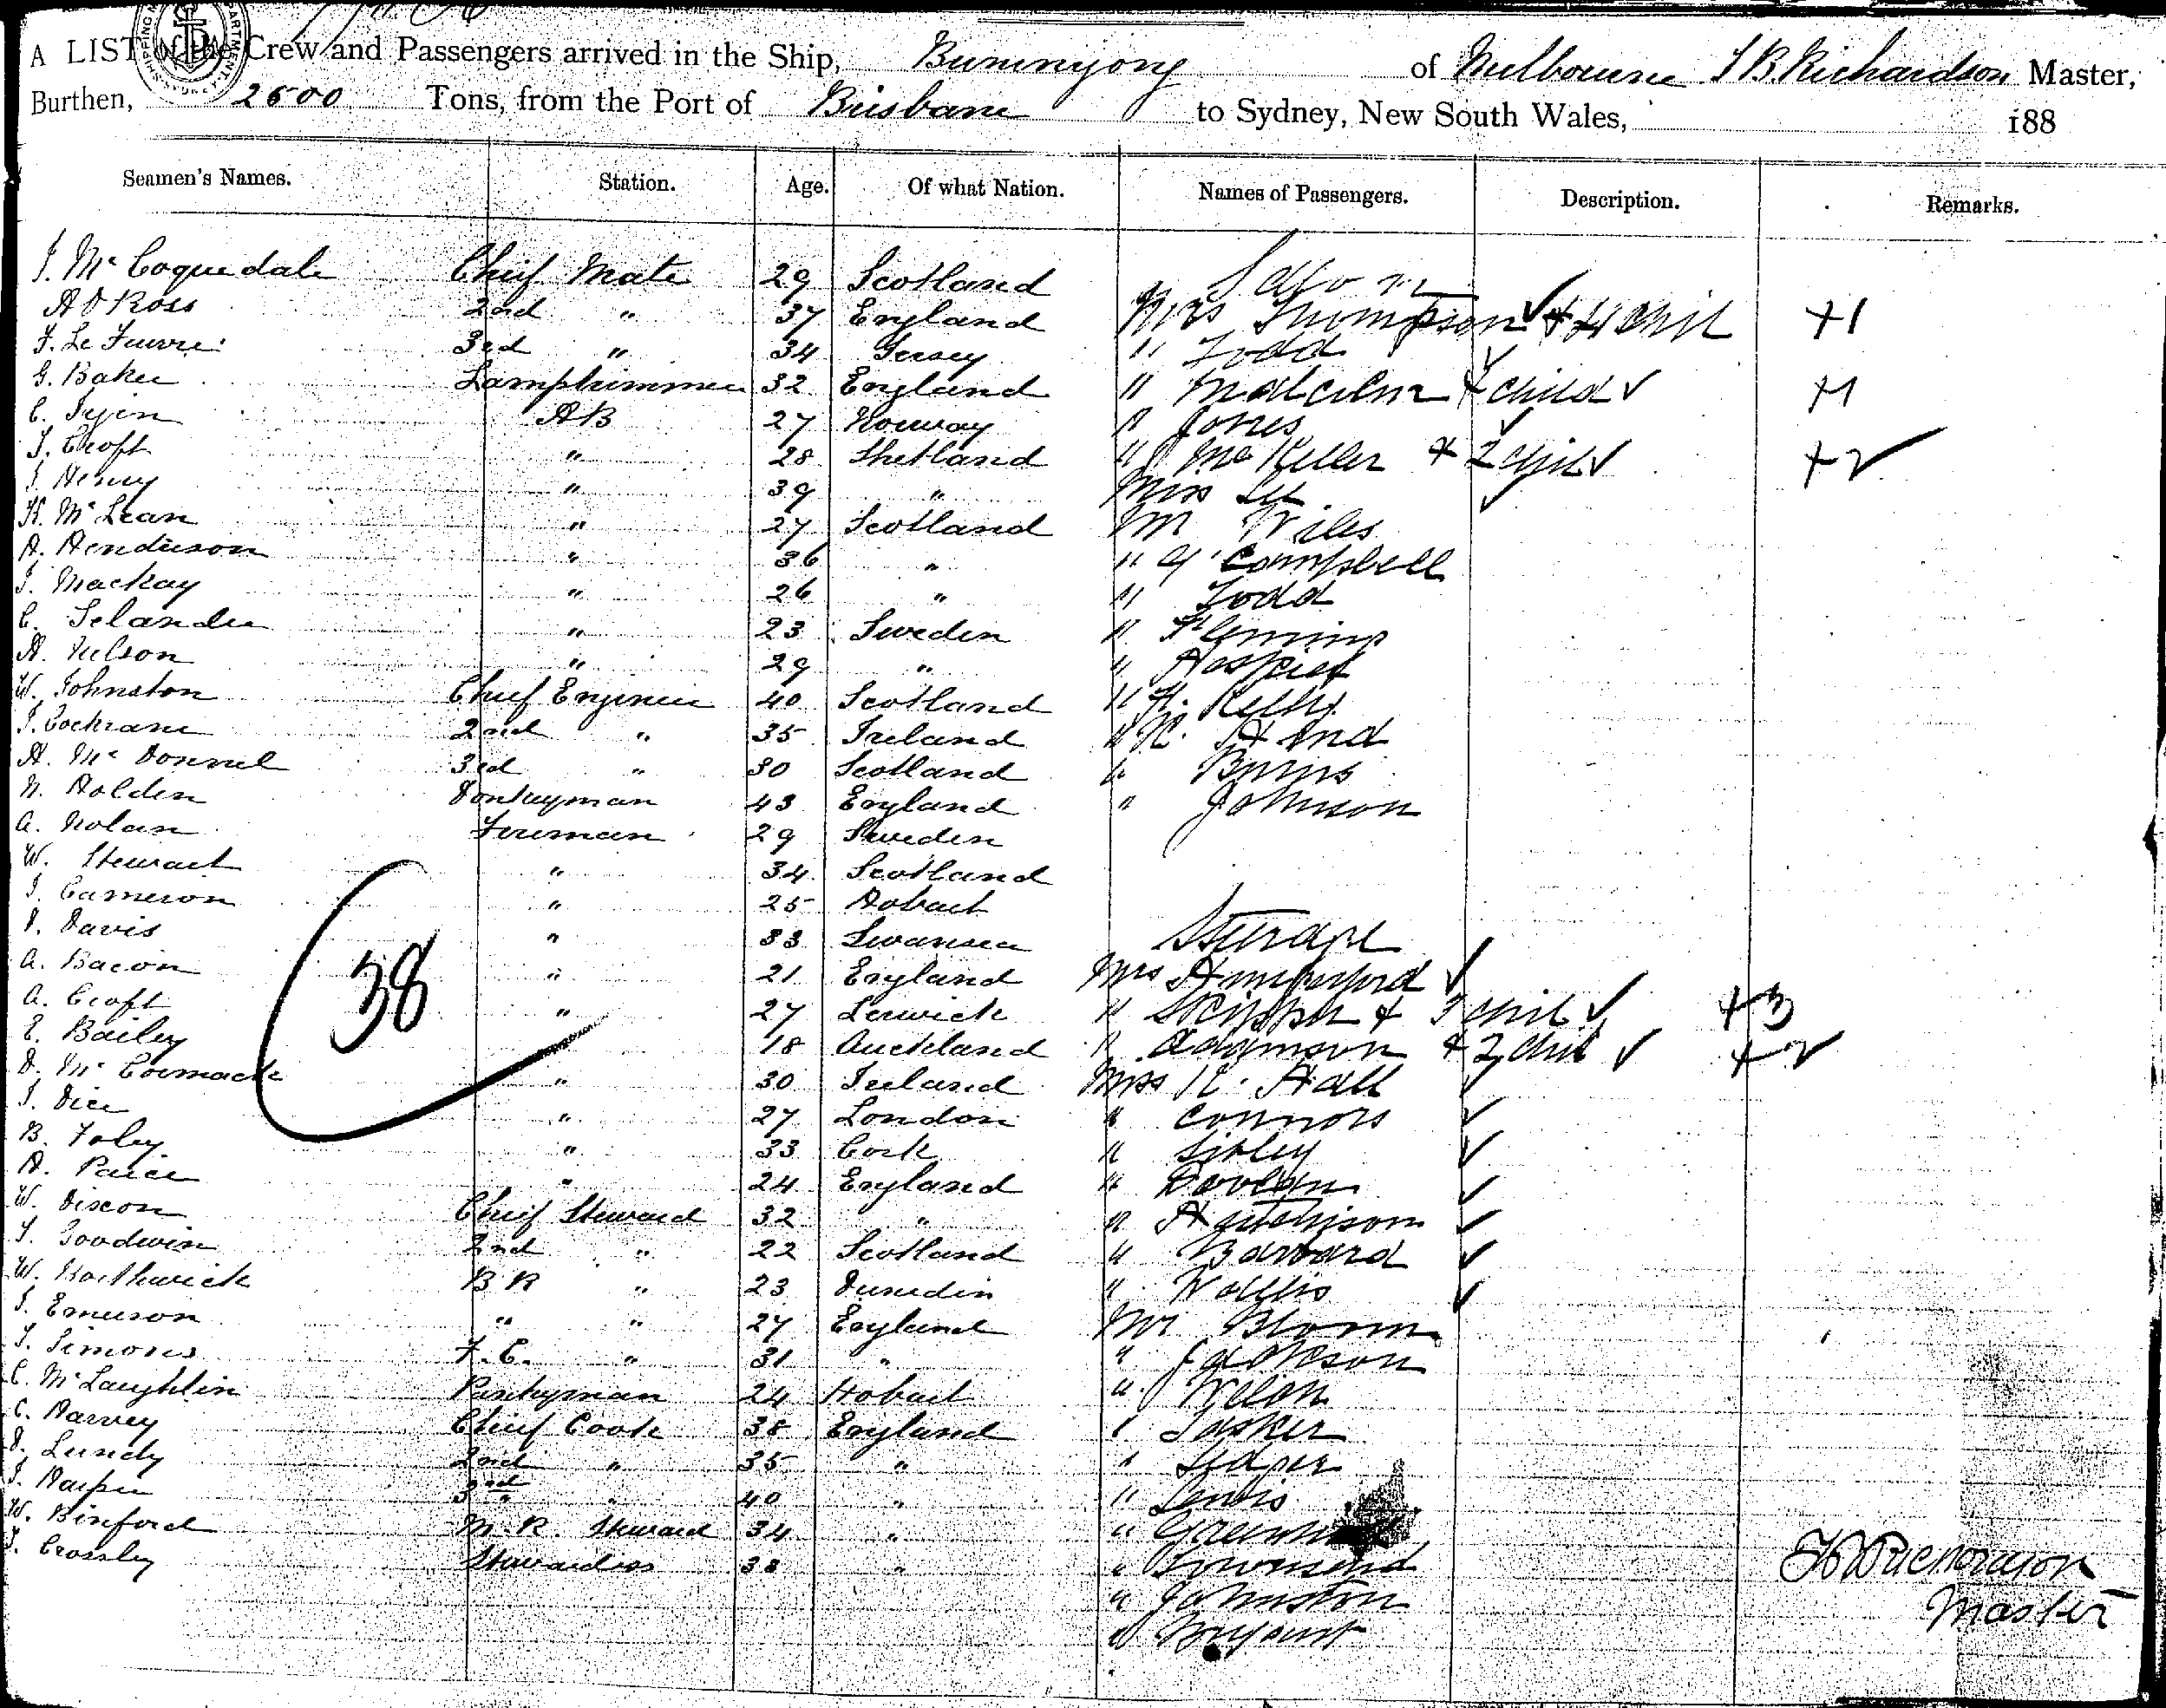 A LIST of the Crew and Passengers arrived in the Ship, Buninyong of Melbourne Richardson Master,
Burthen, 2500 Tons, from the Port of Brisbane to Sydney, New South Wales, 188
Seamen's Names. Station. Age. Of what Nation. Names of Passengers. Description. Remarks.
J. McCoquedale Chief Mate 29 Scotland Saloon
A D Ross 2nd " 37 England Mrs Thompson & 4 chil +1
F. Le Feuvre 3rd " 34 Jersey " Todd
G. Baker Lamptrimmer 32 England " Malcolm & child +1
C. AB 27 Norway " Jones
J. Croft " 28 Shetland " McKeller & 2 chil +2
J. Henry " 39 " Miss
K. McLean " 27 Scotland Mr Wiles
A. Henderson " 36 " " Campbell
J. Mackay " 26 " " Todd
C. Selander " 23 Sweden " Fleming
A. Nelson " 29 " "
W. Johnston Chief Engineer 40 Scotland " H. Kelly
J. Cochrane 2nd " 35 Ireland "
A. McDonnel 3rd " 30 Scotland " Burns
N. Holden Donkeyman 43 England " Johnson
A. Nolan Fireman 29 Sweden
W. Stewart " 34 Scotland
J. Cameron " 25 Hobart
D. Davis " 33 Swansea Steerage
A. Bacon " 21 England Mrs
A. Croft " 27 Lerwick " Skipper & 3 chil +3
E. Bailey 18 Auckland " Adamson & 2 chil +2
D. McCormack " 30 Ireland Miss K. Hall
J. Dice " 27 London " Connors
B. Foley " 33 Cork " Sibley
A. " 24 England "
W. Dixon Chief Steward 32 " " Hutchison
J. Goodwin 2nd " 22 Scotland "
W. Borthwick B R " 23 Dunedin " Wallis
J. Emerson " " 27 England Mr
J. Simons F. C. " 31 " " Jackson
C. McLaughlin Pantryman 24 Hobart "
C. Harvey Chief Cook 38 England " Tasker
D. Lundy 2nd " 35 "
J. Harper 3rd " 40 " " Lewis
W. Binford M. R. Steward 34 " "
J. Crossley Stewardess 38 " " Townsend
" Johnston
"
38
Richardson
Master